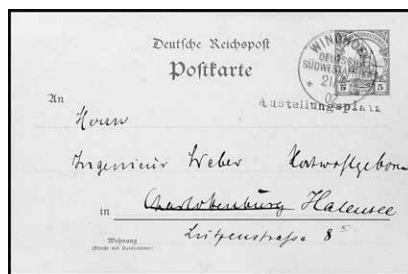 Deutsche Reichspost
Postkarte
WINDHOEK
DEUTSCH-
SÜDWESTAFRIKA
5 5
Austellungsplatz
An
Herrn
Ingenieur Weber
in Charlottenburg Halensee
Wohnung
(Straße und Hausnummer)
Lützenstraße 8